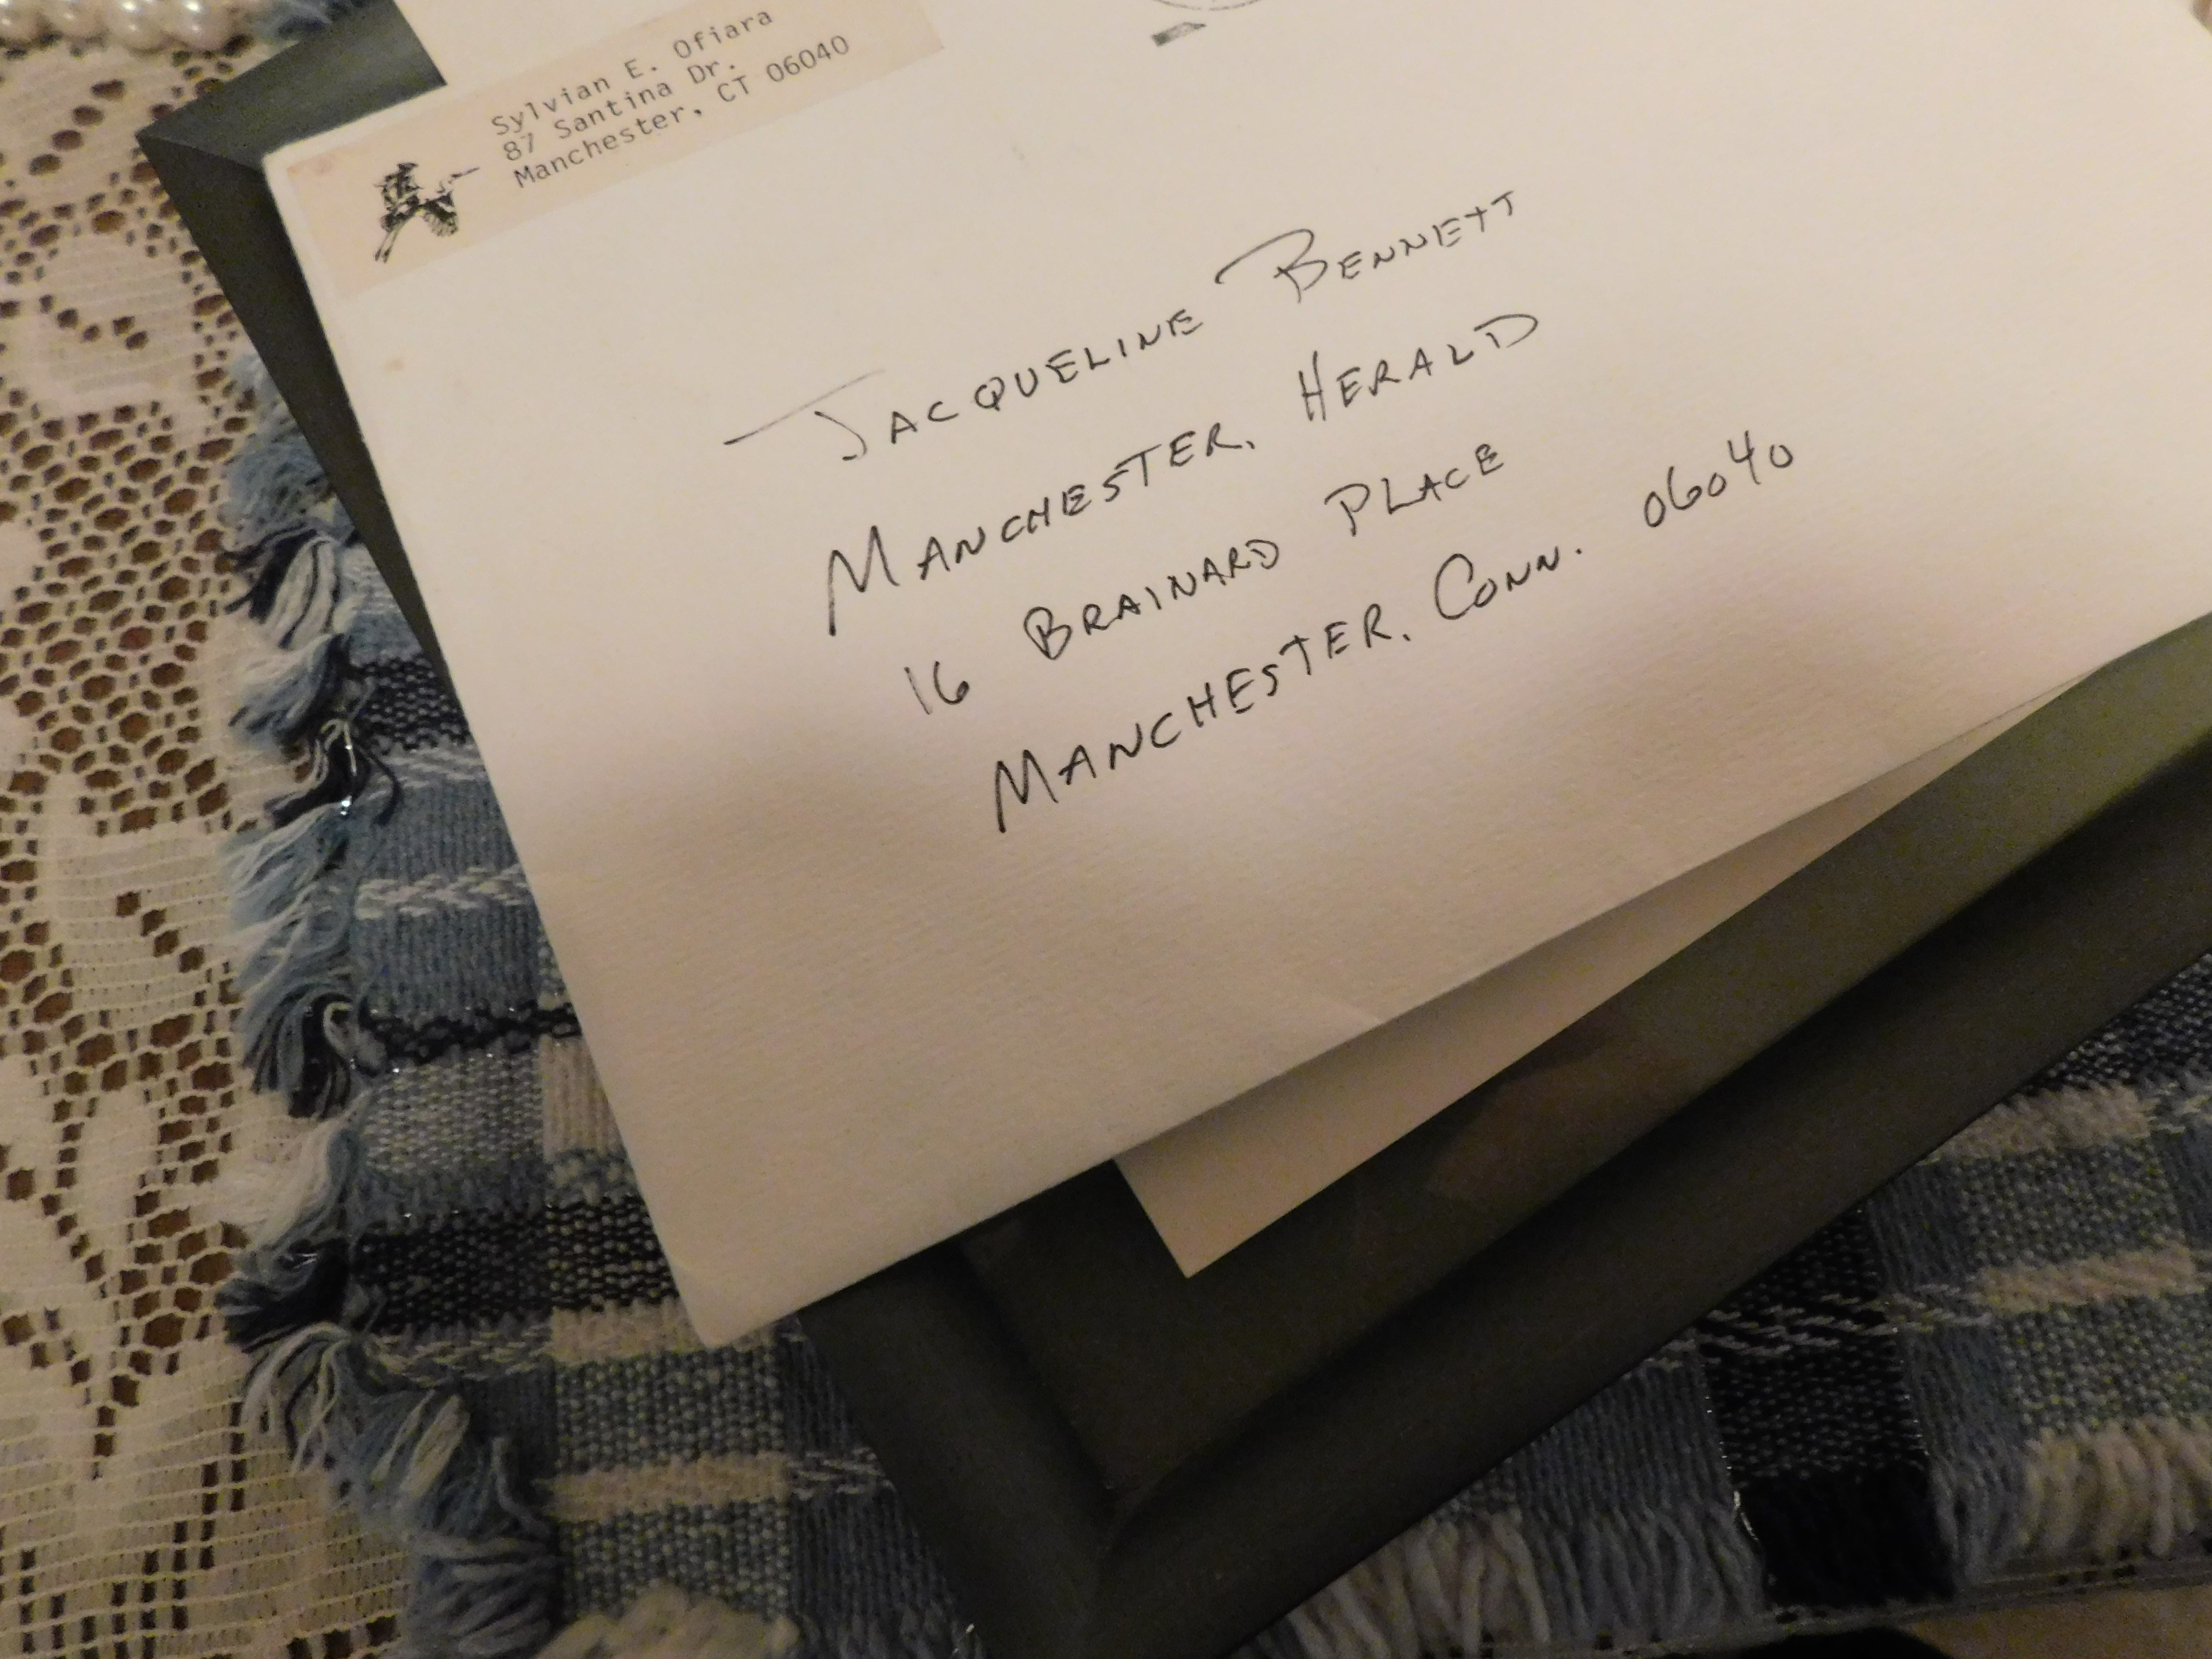 Sylvian E. Ofiara
87 Santina Dr.
Manchester, CT 06040
JACQUELINE BENNETT
MANCHESTER, HERALD
16 BRAINARD PLACE
MANCHESTER, CONN. 06040